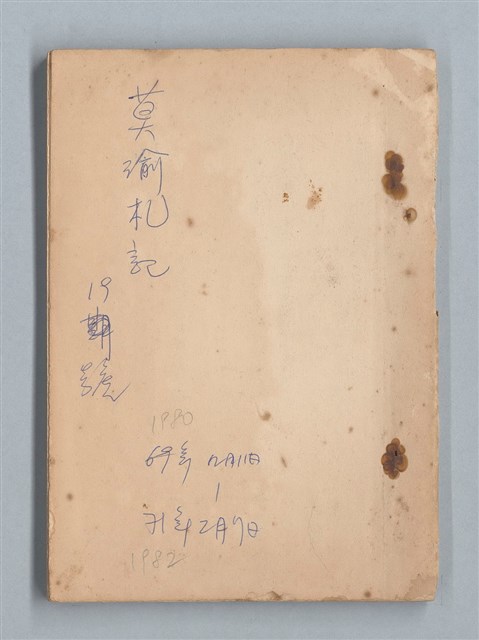 莫瑜札記
19
號
1980
69年 12月11日
|
71年2月7日
1982